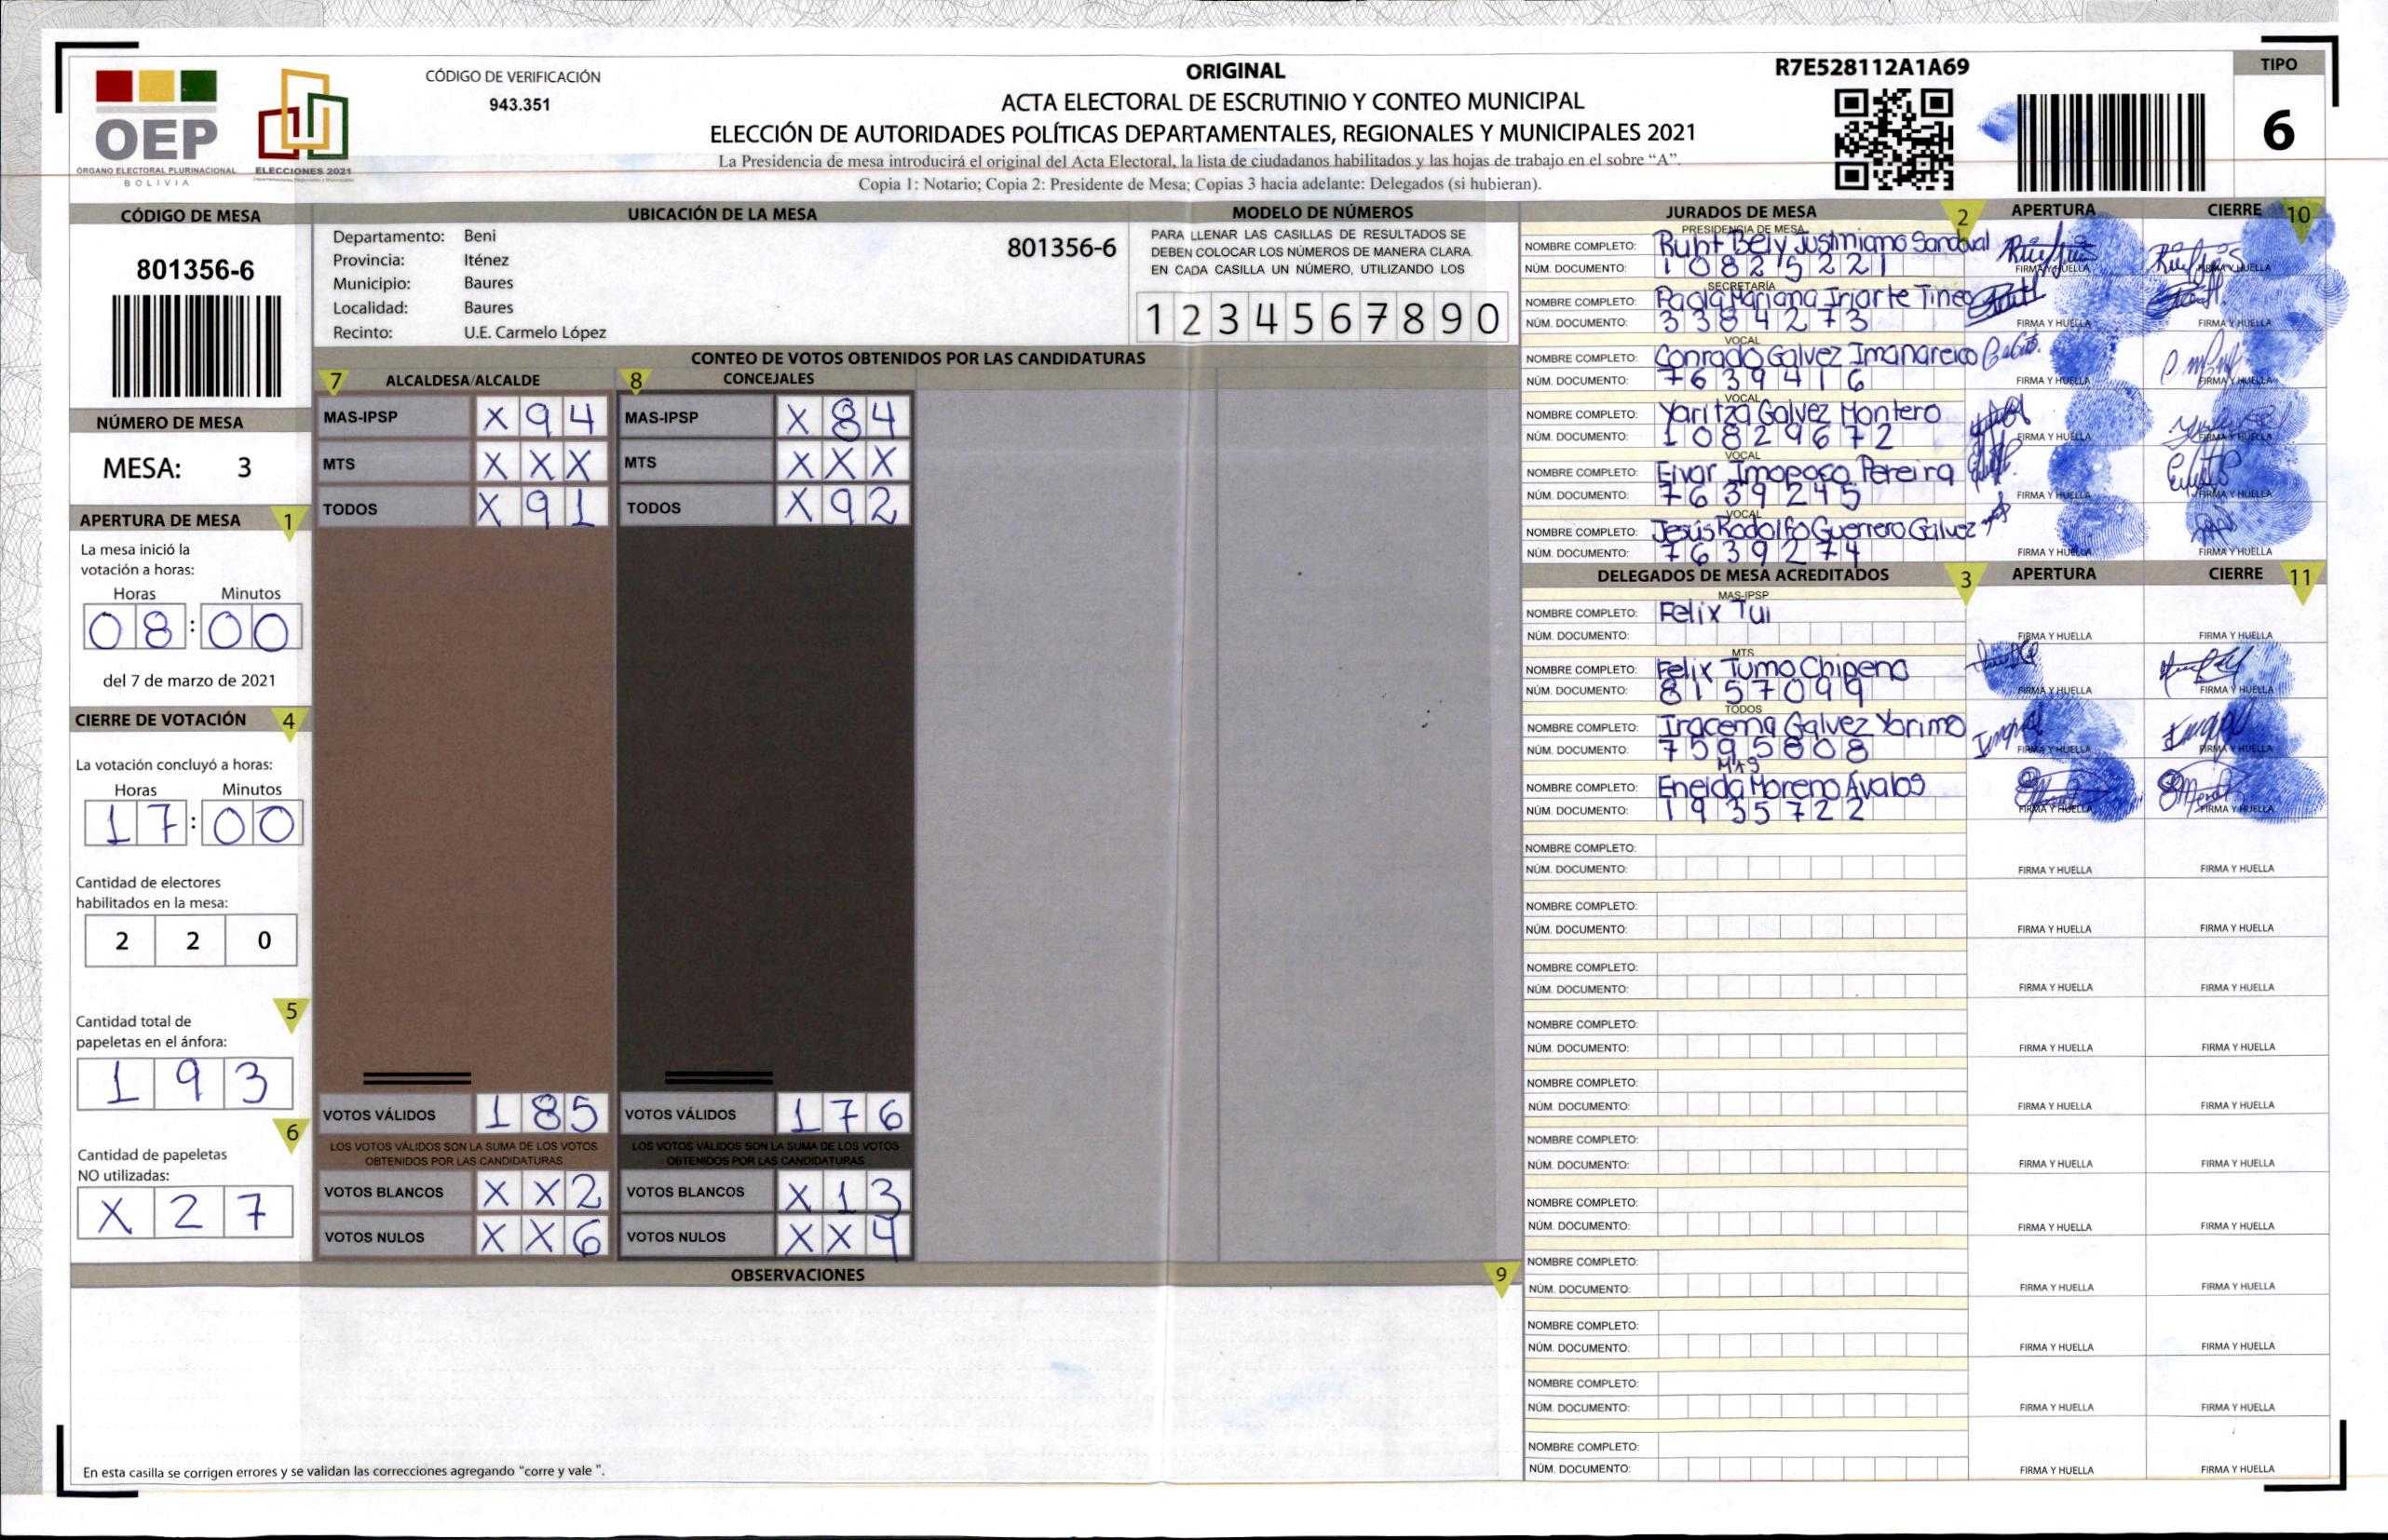 OEP
ÓRGANO ELECTORAL PLURINACIONAL
BOLIVIA
ELECCIONES 2021
CÓDIGO DE VERIFICACIÓN
943.351
ORIGINAL
ACTA ELECTORAL DE ESCRUTINIO Y CONTEO MUNICIPAL
ELECCIÓN DE AUTORIDADES POLÍTICAS DEPARTAMENTALES, REGIONALES Y MUNICIPALES 2021
La Presidencia de mesa introducirá el original del Acta Electoral, la lista de ciudadanos habilitados y las hojas de trabajo en el sobre “A”.
Copia 1: Notario; Copia 2: Presidente de Mesa; Copias 3 hacia adelante: Delegados (si hubieran).
R7E528112A1A69
TIPO
6
CÓDIGO DE MESA
801356-6
NÚMERO DE MESA
MESA: 3
APERTURA DE MESA 1
La mesa inició la
votación a horas:
Horas Minutos
08:00
del 7 de marzo de 2021
CIERRE DE VOTACIÓN 4
La votación concluyó a horas:
Horas Minutos
17:00
Cantidad de electores
habilitados en la mesa:
2 2 0
5
Cantidad total de
papeletas en el ánfora:
1 9 3
6
Cantidad de papeletas
NO utilizadas:
X 2 7
UBICACIÓN DE LA MESA
Departamento: Beni
801356-6
Provincia: Iténez
Municipio: Baures
Localidad: Baures
Recinto: U.E. Carmelo López
MODELO DE NÚMEROS
PARA LLENAR LAS CASILLAS DE RESULTADOS SE
DEBEN COLOCAR LOS NÚMEROS DE MANERA CLARA.
EN CADA CASILLA UN NÚMERO, UTILIZANDO LOS
1 2 3 4 5 6 7 8 9 0
CONTEO DE VOTOS OBTENIDOS POR LAS CANDIDATURAS
7 ALCALDESA/ALCALDE
MAS-IPSP X 9 4
MTS X X X
TODOS X 9 1
VOTOS VÁLIDOS 1 8 5
LOS VOTOS VÁLIDOS SON LA SUMA DE LOS VOTOS
OBTENIDOS POR LAS CANDIDATURAS
VOTOS BLANCOS X X 2
VOTOS NULOS X X 6
8 CONCEJALES
MAS-IPSP X 8 4
MTS X X X
TODOS X 9 2
VOTOS VÁLIDOS 1 7 6
LOS VOTOS VÁLIDOS SON LA SUMA DE LOS VOTOS
OBTENIDOS POR LAS CANDIDATURAS
VOTOS BLANCOS X 1 3
VOTOS NULOS X X 4
OBSERVACIONES 9
En esta casilla se corrigen errores y se validan las correcciones agregando “corre y vale ”.
JURADOS DE MESA 2 APERTURA CIERRE 10
PRESIDENCIA DE MESA
NOMBRE COMPLETO: Bely Justiniano Sandoval
NÚM. DOCUMENTO: 10825221 FIRMA Y HUELLA FIRMA Y HUELLA
SECRETARÍA
NOMBRE COMPLETO: Paola Mariana Iriarte Tineo
NÚM. DOCUMENTO: 3384273 FIRMA Y HUELLA FIRMA Y HUELLA
VOCAL
NOMBRE COMPLETO: Conrado Galvez Imanareico
NÚM. DOCUMENTO: 7639416 FIRMA Y HUELLA FIRMA Y HUELLA
VOCAL
NOMBRE COMPLETO: Yaritza Galvez Montero
NÚM. DOCUMENTO: 10829672 FIRMA Y HUELLA FIRMA Y HUELLA
VOCAL
NOMBRE COMPLETO: Eivar Imopoco Pereira
NÚM. DOCUMENTO: 7639245 FIRMA Y HUELLA FIRMA Y HUELLA
VOCAL
NOMBRE COMPLETO: Jesús Rodolfo Guerrero Galvez
NÚM. DOCUMENTO: 7639274 FIRMA Y HUELLA FIRMA Y HUELLA
DELEGADOS DE MESA ACREDITADOS 3 APERTURA CIERRE 11
MAS-IPSP
NOMBRE COMPLETO: Felix Tui
NÚM. DOCUMENTO: FIRMA Y HUELLA FIRMA Y HUELLA
MTS
NOMBRE COMPLETO: Felix Tumo Chipeno
NÚM. DOCUMENTO: 8157099 FIRMA Y HUELLA FIRMA Y HUELLA
TODOS
NOMBRE COMPLETO: Iracema Galvez Yorimo
NÚM. DOCUMENTO: 7595808 FIRMA Y HUELLA FIRMA Y HUELLA
MAS
NOMBRE COMPLETO: Eneida Moreno Avalos
NÚM. DOCUMENTO: 1935722 FIRMA Y HUELLA FIRMA Y HUELLA
NOMBRE COMPLETO:
NÚM. DOCUMENTO: FIRMA Y HUELLA FIRMA Y HUELLA
NOMBRE COMPLETO:
NÚM. DOCUMENTO: FIRMA Y HUELLA FIRMA Y HUELLA
NOMBRE COMPLETO:
NÚM. DOCUMENTO: FIRMA Y HUELLA FIRMA Y HUELLA
NOMBRE COMPLETO:
NÚM. DOCUMENTO: FIRMA Y HUELLA FIRMA Y HUELLA
NOMBRE COMPLETO:
NÚM. DOCUMENTO: FIRMA Y HUELLA FIRMA Y HUELLA
NOMBRE COMPLETO:
NÚM. DOCUMENTO: FIRMA Y HUELLA FIRMA Y HUELLA
NOMBRE COMPLETO:
NÚM. DOCUMENTO: FIRMA Y HUELLA FIRMA Y HUELLA
NOMBRE COMPLETO:
NÚM. DOCUMENTO: FIRMA Y HUELLA FIRMA Y HUELLA
NOMBRE COMPLETO:
NÚM. DOCUMENTO: FIRMA Y HUELLA FIRMA Y HUELLA
NOMBRE COMPLETO:
NÚM. DOCUMENTO: FIRMA Y HUELLA FIRMA Y HUELLA
NOMBRE COMPLETO:
NÚM. DOCUMENTO: FIRMA Y HUELLA FIRMA Y HUELLA